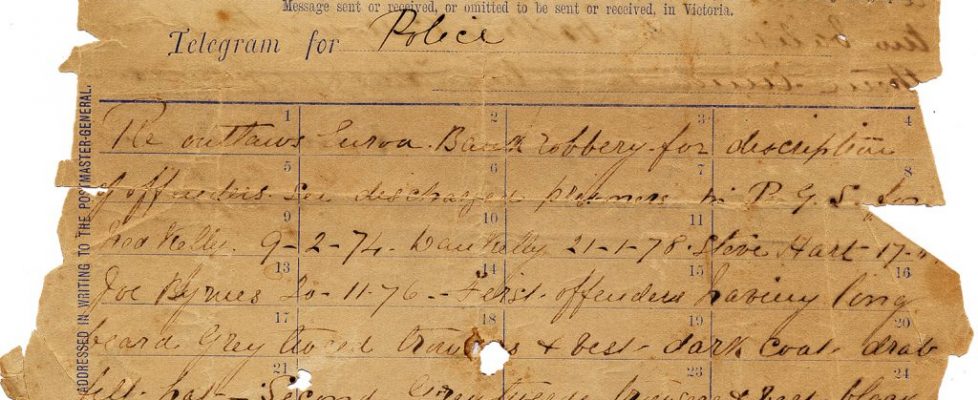 Message sent or received, or omitted to be sent or received, in Victoria.
Telegram for Police
1 2 3 4
Re outlaws Euroa Bank robbery for description
5 6 7 8
of offenders see discharged prisoners in P. G. S.
9 10 11
Ned Kelly 9-2-74. Dan Kelly 21-1-78. Steve Hart 17-
13 14 15 16
Joe Byrnes 20-11-76 - First offender having long
17 18 19 20
beard Grey tweed trousers & vest dark coat drab
21 23 24
felt hat - Second Grey tweed trousers & vest black
ADDRESSED IN WRITING TO THE POSTMASTER-GENERAL.